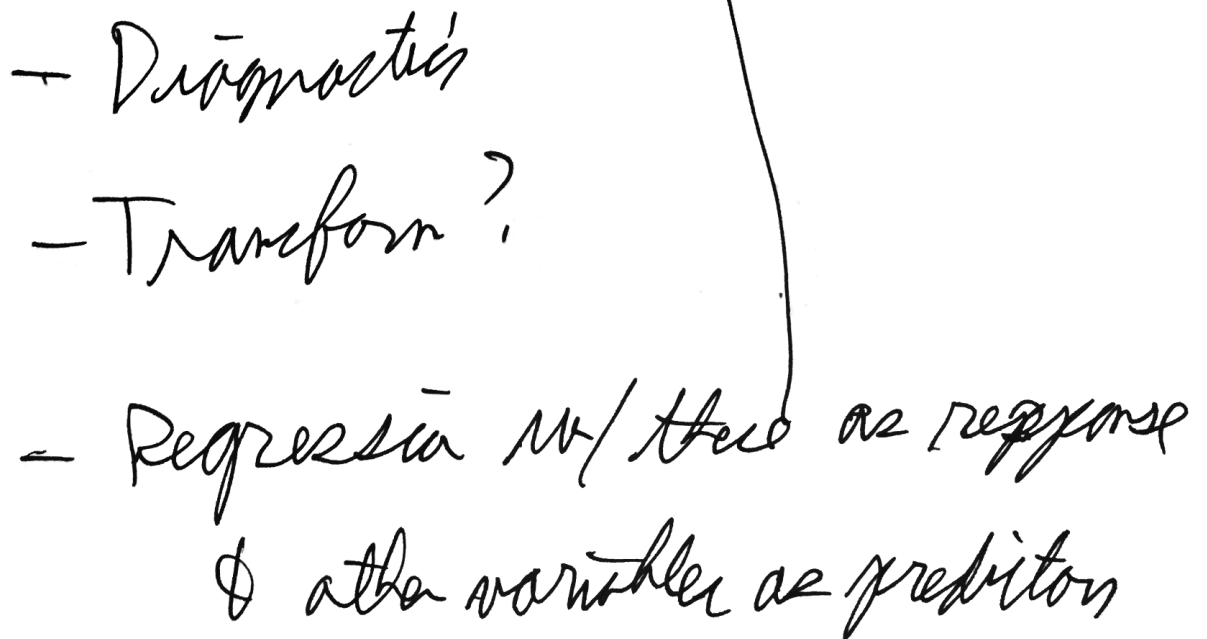 - Diagnostics
- Transform?
- Regression w/ these as response
& other variables as predictors